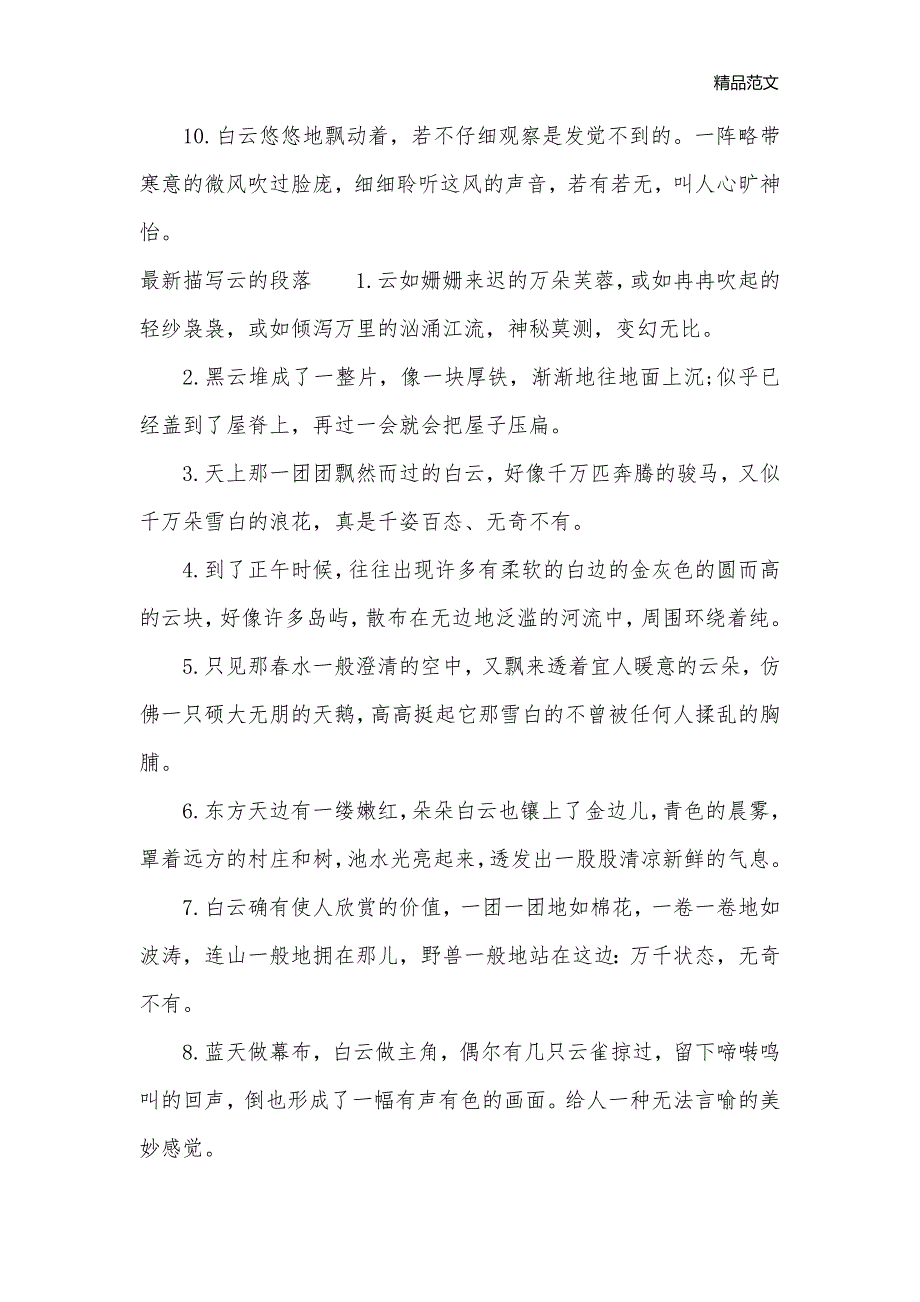 精品范文
10.白云悠悠地飘动着，若不仔细观察是发觉不到的。一阵略带
寒意的微风吹过脸庞，细细聆听这风的声音，若有若无，叫人心旷神
怡。
最新描写云的段落　　1.云如姗姗来迟的万朵芙蓉，或如冉冉吹起的
轻纱袅袅，或如倾泻万里的汹涌江流，神秘莫测，变幻无比。
2.黑云堆成了一整片，像一块厚铁，渐渐地往地面上沉;似乎已
经盖到了屋脊上，再过一会就会把屋子压扁。
3.天上那一团团飘然而过的白云，好像千万匹奔腾的骏马，又似
千万朵雪白的浪花，真是千姿百态、无奇不有。
4.到了正午时候，往往出现许多有柔软的白边的金灰色的圆而高
的云块，好像许多岛屿，散布在无边地泛滥的河流中，周围环绕着纯。
5.只见那春水一般澄清的空中，又飘来透着宜人暖意的云朵，仿
佛一只硕大无朋的天鹅，高高挺起它那雪白的不曾被任何人揉乱的胸
脯。
6.东方天边有一缕嫩红，朵朵白云也镶上了金边儿，青色的晨雾，
罩着远方的村庄和树，池水光亮起来，透发出一股股清凉新鲜的气息。
7.白云确有使人欣赏的价值，一团一团地如棉花，一卷一卷地如
波涛，连山一般地拥在那儿，野兽一般地站在这边：万千状态，无奇
不有。
8.蓝天做幕布，白云做主角，偶尔有几只云雀掠过，留下啼啭鸣
叫的回声，倒也形成了一幅有声有色的画面。给人一种无法言喻的美
妙感觉。